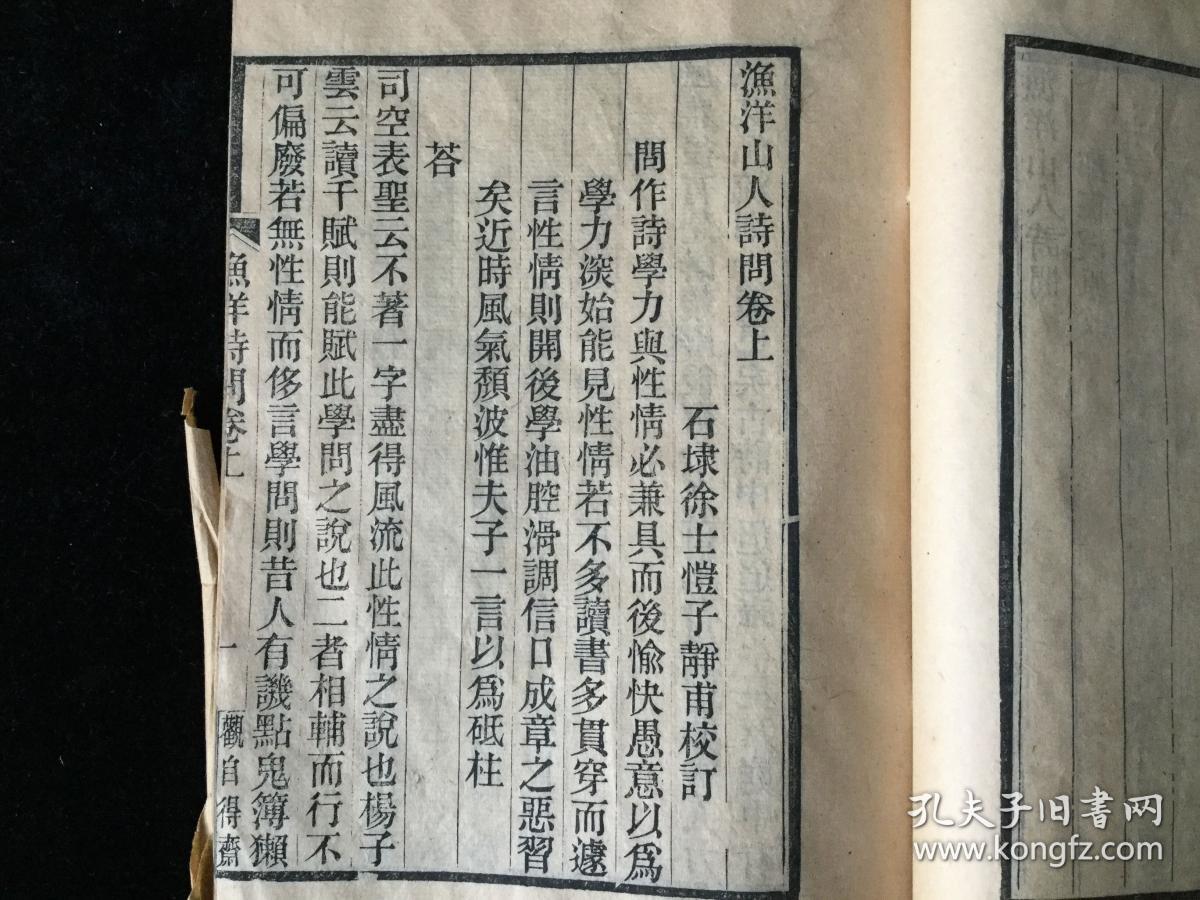 漁洋山人詩問卷上
石埭徐士愷子靜甫校訂
問作詩學力與性情必兼具而後愉快愚意以爲
學力深始能見性情若不多讀書多貫穿而遽
言性情則開後學油腔滑調信口成章之惡習
矣近時風氣頹波惟夫子一言以爲砥柱
荅
司空表聖云不著一字盡得風流此性情之說也楊子
雲云讀千賦則能賦此學問之說也二者相輔而行不
可偏廢若無性情而侈言學問則昔人有譏點鬼簿獺
漁洋詩問卷上
一
觀自得齋
孔夫子旧书网
www.kongfz.com